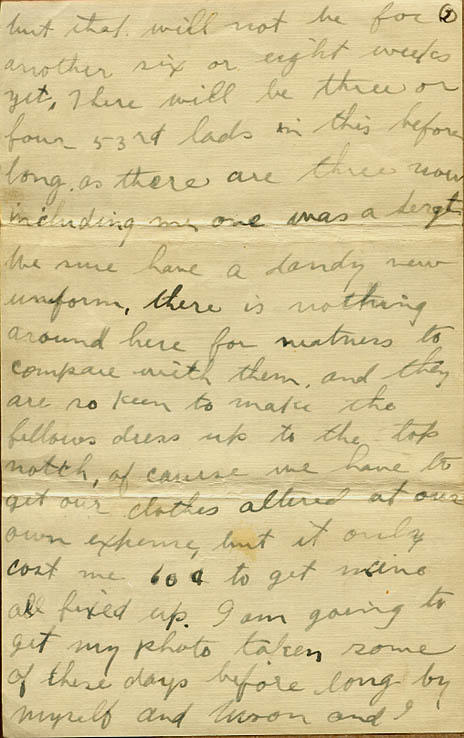 but that will not be for 2
another six or eight weeks
yet, There will be three or
four 53rd lads in this before
long, as there are three now
including me one was a Sergt
We sure have a dandy new
uniform, there is nothing
around here for neatness to
compare with them, and they
are so keen to make the
fellows dress up to the top
notch, of causse we have to
get our clothes altered at our
own expense, but it only
cost me 60¢ to get mine
all fixed up. I am going to
get my photo taken some
of these days before long by
myself and and I